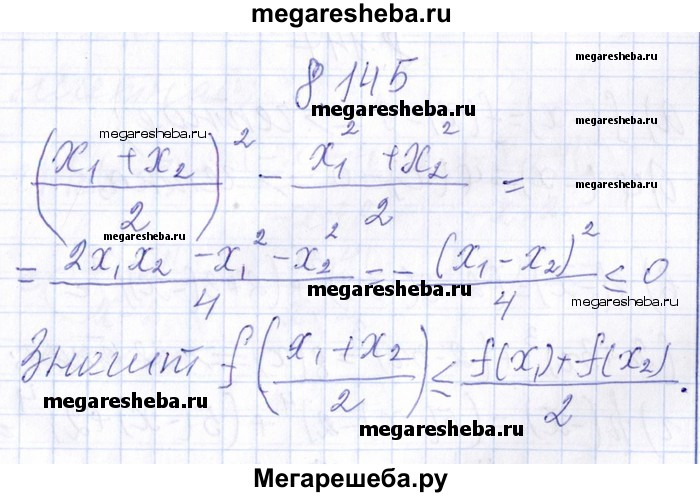 megaresheba.ru
§ 145
megaresheba.ru
megaresheba.ru
megaresheba.ru
((x₁ + x₂)/2)² - (x₁² + x₂²)/2 =
megaresheba.ru
megaresheba.ru
= (2x₁x₂ - x₁² - x₂²)/4 = - (x₁ - x₂)²/4 ≤ 0
megaresheba.ru
megaresheba.ru
Значит f((x₁ + x₂)/2) ≤ (f(x₁) + f(x₂))/2.
megaresheba.ru
megaresheba.ru
Мегарешеба.ру